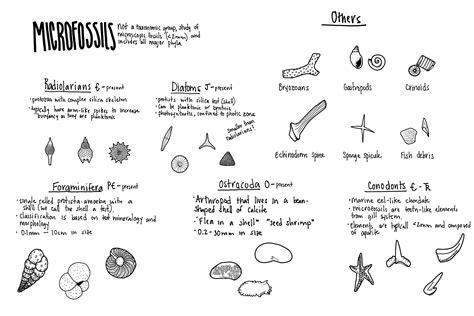 MICROFOSSILS
Not a taxonomic group, study of
microscopic fossils (<2mm) and
includes all major phyla.
Others
Radiolarians Є - present
• protozoan with complex silica skeleton
• typically have arm-like spikes to increase
buoyancy as they are planktonic
Diatoms J - present
• protists with silica test (shell)
• Can be planktonic or benthic
• photosynthetic, confined to photic zone
Smaller than
radiolarians!
Bryozoans
Gastropods
Crinoids
Echinoderm spine
Sponge spicule
Fish debris
Foraminifera PЄ - present
• single celled protists - amoeba with a
shell (we call the shell a test).
• Classification is based on test mineralogy and
morphology
• 0.1mm - 10cm in size
Ostracoda O - present
• Arthropod that lives in a bean-
shaped shell of calcite
• "Flea in a shell" "seed shrimp"
• 0.2 - 30mm in size
Conodonts Є - Ŧ
• marine eel-like chordate
• microfossils are teeth-like elements
from gill system.
• elements are typically <2mm and composed
of apatite